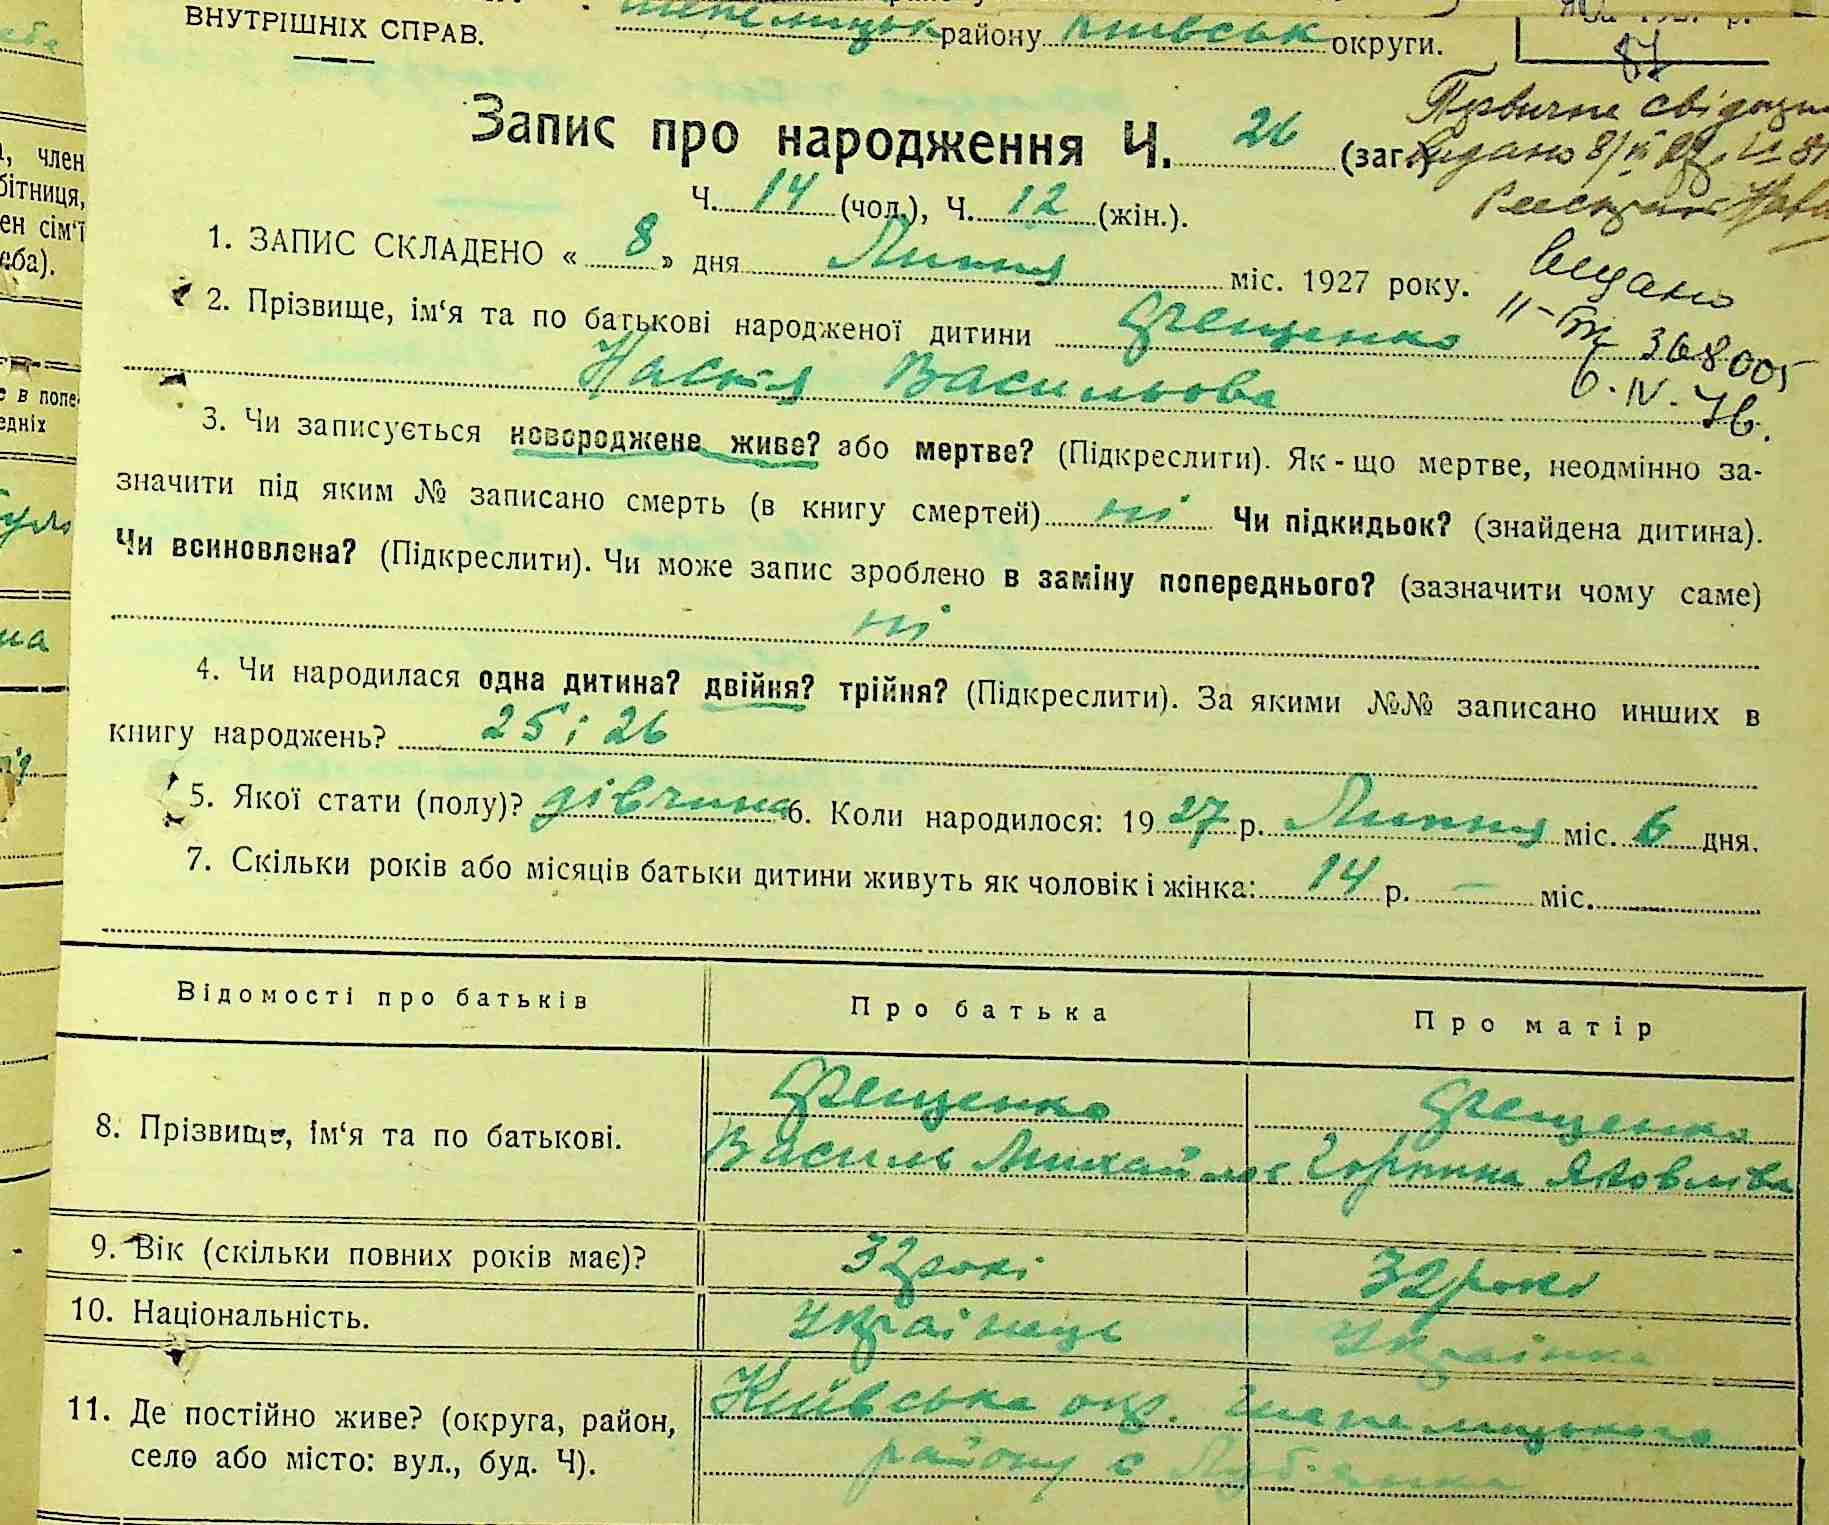 ВНУТРІШНІХ СПРАВ. Шепелицьк району Київськ округи.
87
Запис про народження Ч. 26 (заг.)
Первичне
видано 8/
Ч. 14 (чол.), Ч. 12 (жін.).
1. ЗАПИС СКЛАДЕНО « 8 » дня Липня міс. 1927 року.
видано
II-
368005
6.IV.76.
2. Прізвище, ім'я та по батькові народженої дитини Грещенко
Настя Васильова
3. Чи записується новороджене живе? або мертве? (Підкреслити). Як-що мертве, неодмінно за-
значити під яким № записано смерть (в книгу смертей) ні Чи підкидьок? (знайдена дитина).
Чи всиновлена? (Підкреслити). Чи може запис зроблено в заміну попереднього? (зазначити чому саме)
ні
4. Чи народилася одна дитина? двійня? трійня? (Підкреслити). За якими №№ записано инших в
книгу народжень? 25 і 26
5. Якої стати (полу)? дівчина 6. Коли народилося: 1927 р. Липня міс. 6 дня.
7. Скільки років або місяців батьки дитини живуть як чоловік і жінка: 14 р. — міс.
Відомості про батьків Про батька Про матір
8. Прізвище, ім'я та по батькові. Грещенко Грещенко
Василь Михайлов Горпина Яковліва
9. Вік (скільки повних років має)? 32 рокі 32 рокі
10. Національність. Українець Українка
11. Де постійно живе? (округа, район, Київська окр. Шепелицького
село або місто: вул., буд. Ч). району с Луб'янка